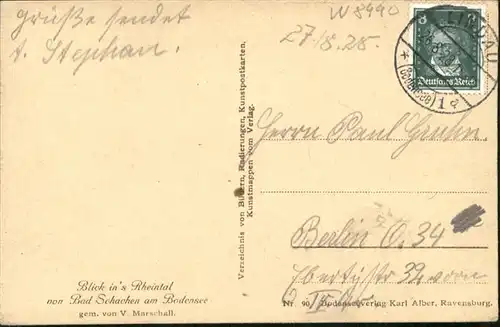 Grüße sendet
t. Stephan.
W 8990
27.8.28.
8
LINDAU
(Bodensee)
1 a
Deutsches Reich
Verzeichnis von Bildern, Radierungen, Kunstpostkarten,
Kunstmappen vom Verlag.
Herrn Paul
Berlin O. 34
Ebertystr 32 vorn
Blick in's Rheintal
von Bad Schachen am Bodensee
gem. von V. Marschall.
Nr. 90 Bodensee-Verlag Karl Alber, Ravensburg.